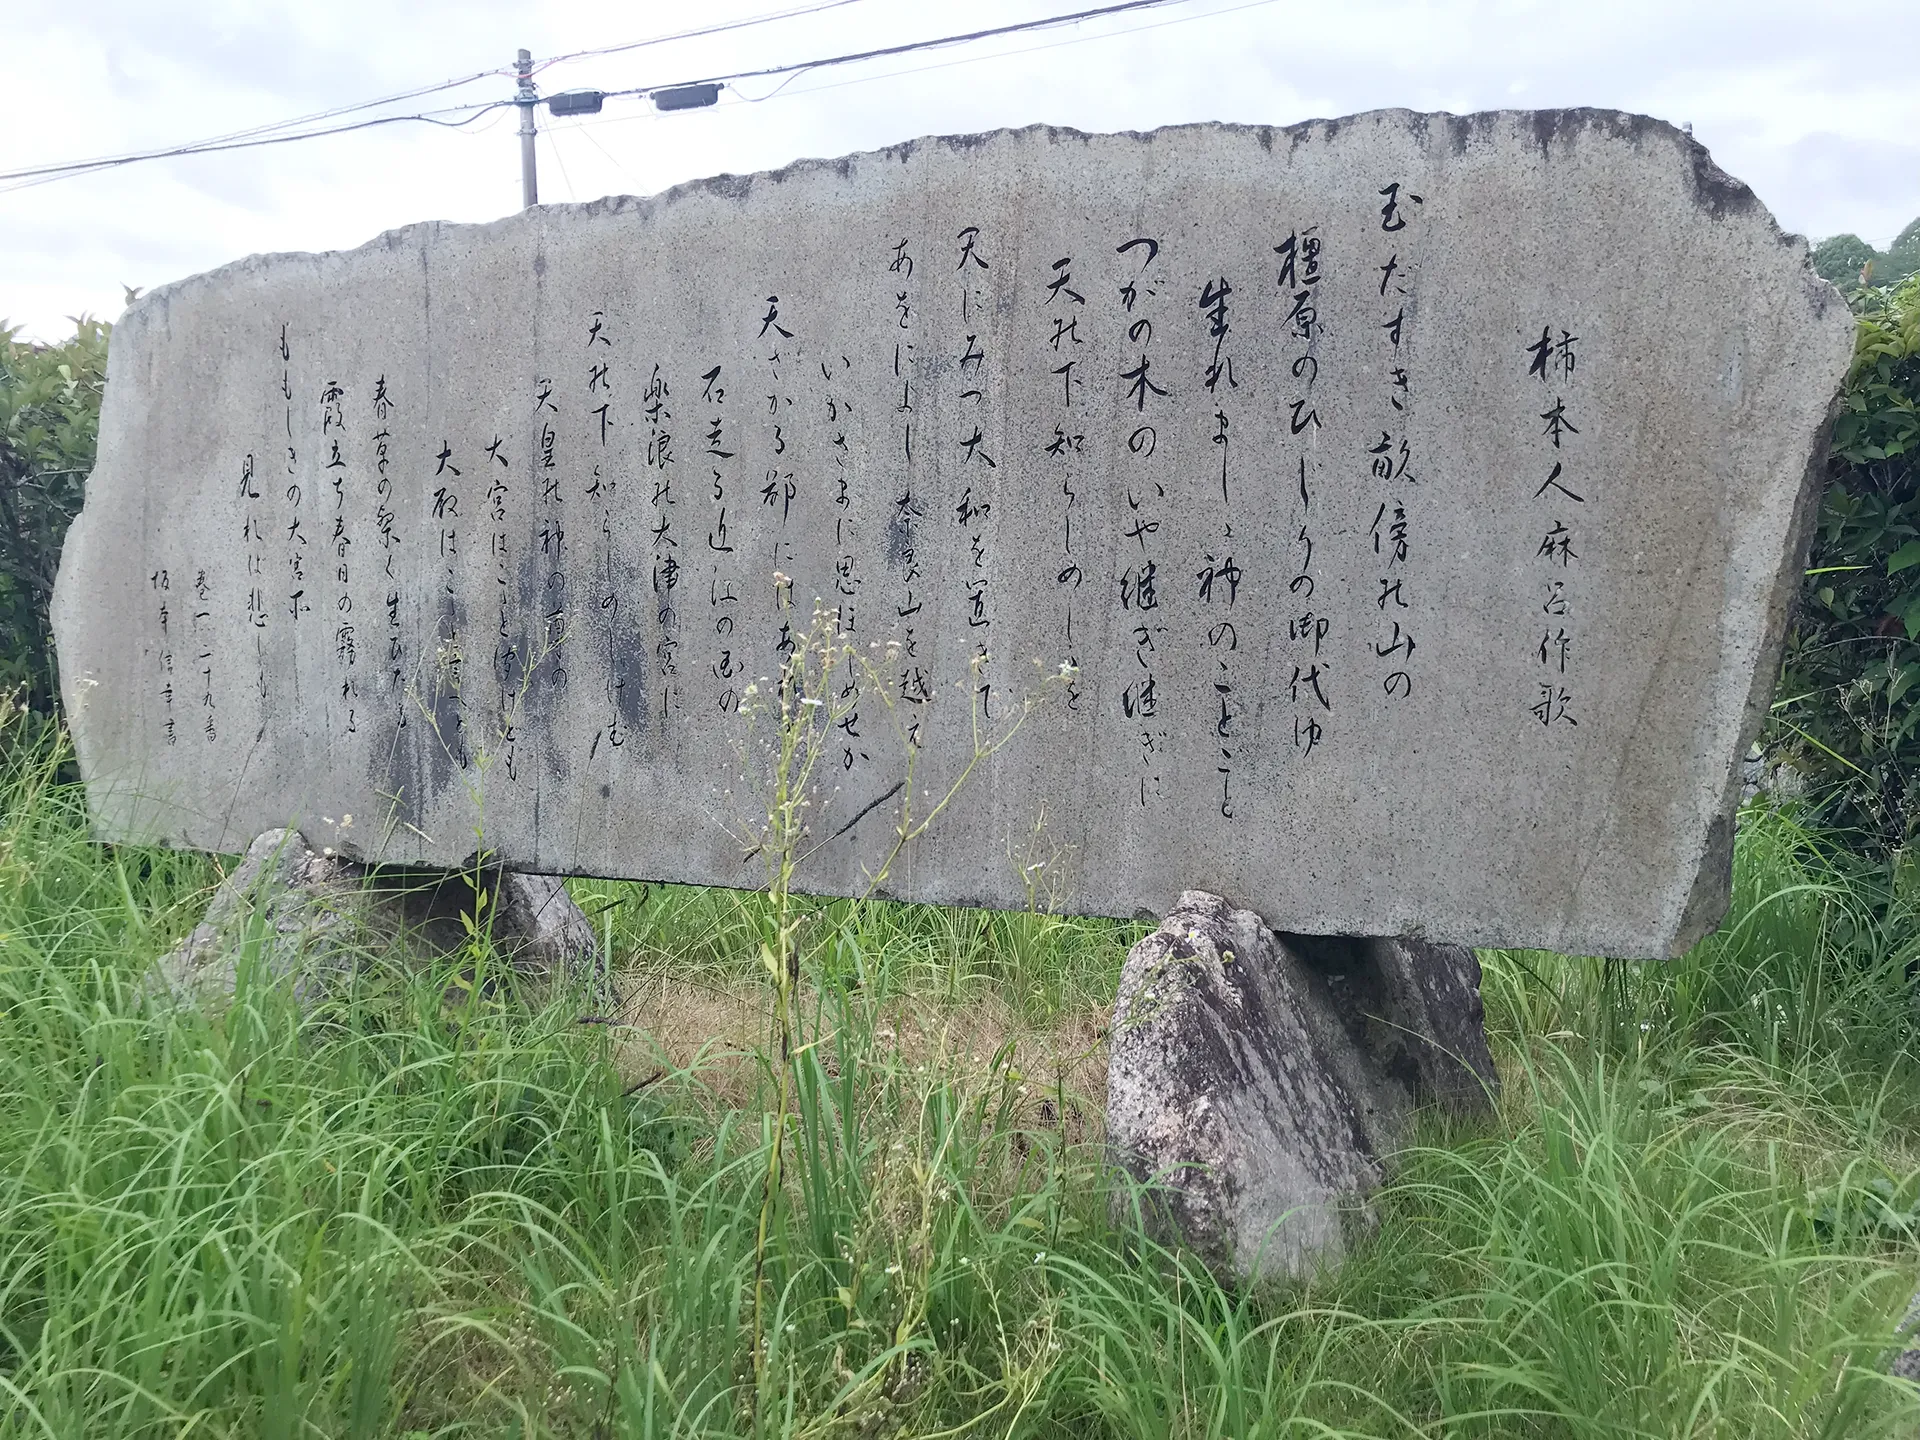 柿本人麻呂作歌
玉だすき畝傍の山の
橿原のひじりの御代ゆ
生れましゝ神のことごと
つがの木のいや継ぎ継ぎに
天の下知らしめしを
天にみつ大和を置きて
あをによし奈良山を越え
いかさまに思ほしめせか
天ざかる鄙にはあれ
石走る近江の国の
楽浪の大津の宮に
天の下知らしめしけむ
天皇の神の尊の
大宮はこゝと聞けども
大殿はこゝと言へども
春草の繁く生ひたる
霞立ち春日の霧れる
ももしきの大宮所
見れば悲しも
巻一 二十九番
坂本信幸書